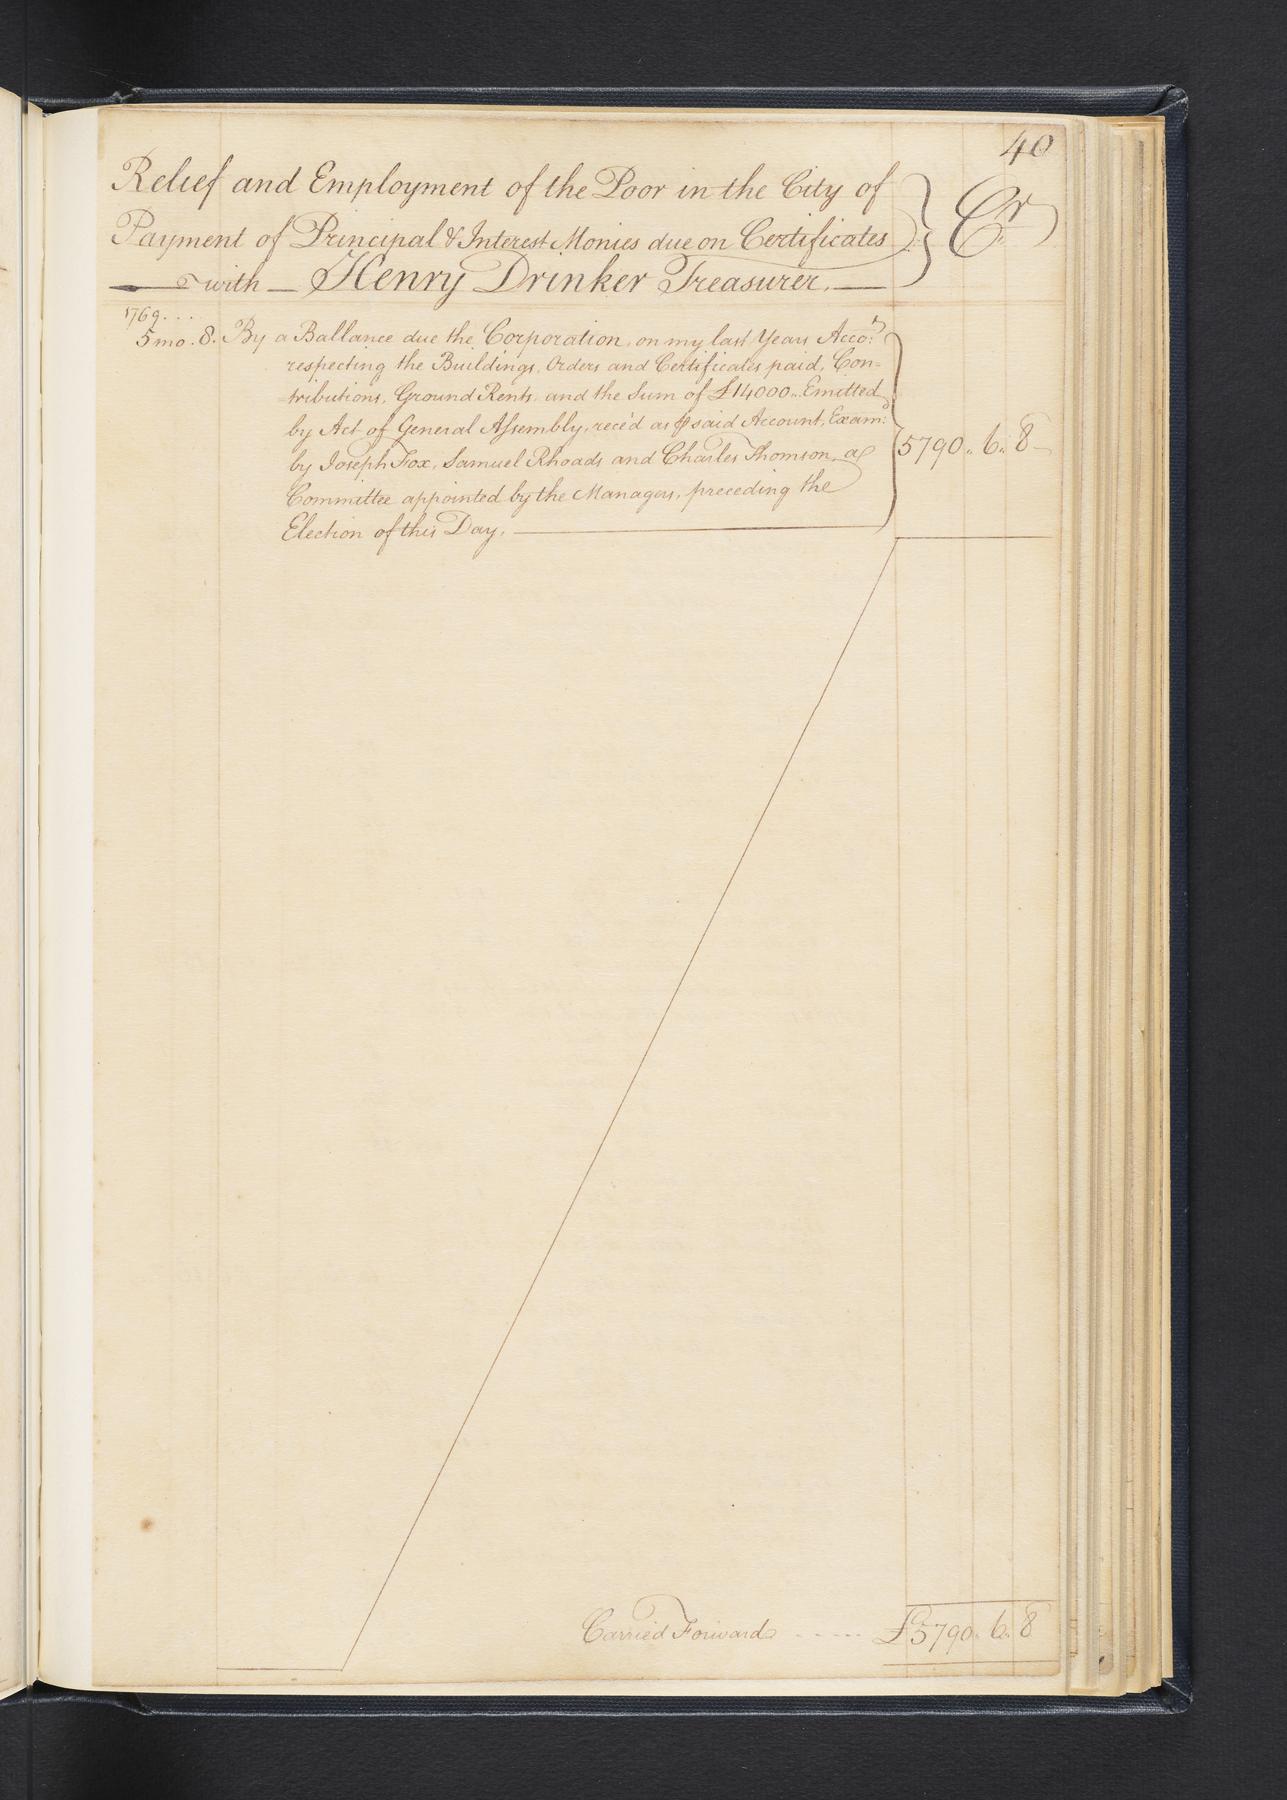 40
Relief and Employment of the Poor in the City of
Payment of Principal & Interest Monies due on Certificates
with Henry Drinker Treasurer.
Cr
1769...
5 mo. 8. By a Ballance due the Corporation, on my last Years Acco.t
respecting the Buildings, Orders and Certificates paid, Con=
=tributions, Ground Rents, and the Sum of £14000.. Emitted
by Act of General Assembly, rece'd as ⅌ said Account, Exam.d
by Joseph Fox, Samuel Rhoads and Charles Thomson, a
Committee appointed by the Managers, preceding the
Election of this Day.
5790.. 6.. 8
Carried Forward ..... £5790.. 6.. 8